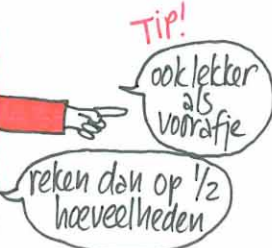 Tip!
ook lekker
als
voorafje
reken dan op 1/2
hoeveelheden